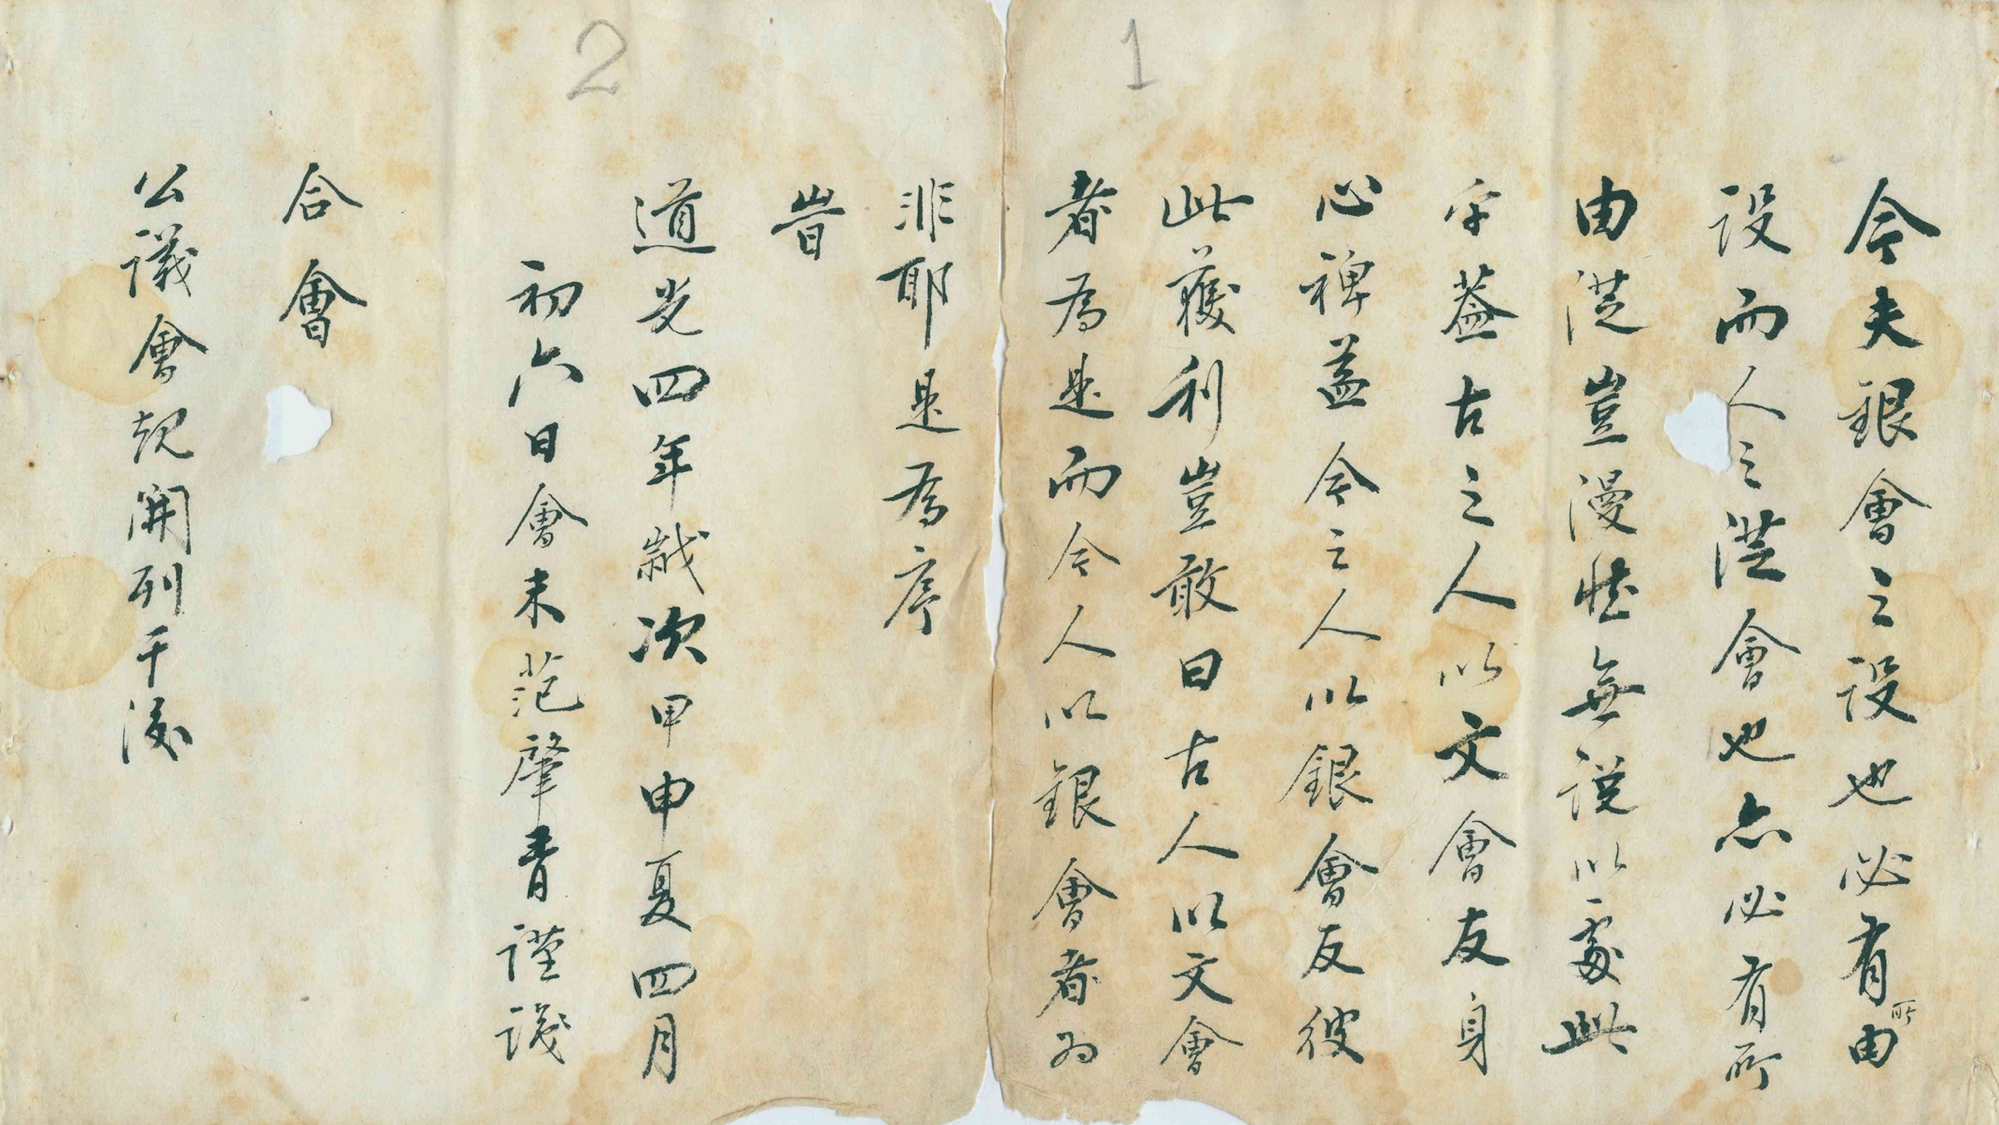 1
今夫銀會之設也必有所由
設而人之從會也亦必有所
由從豈漫然無說以處此
乎蓋古之人以文會友身
心裨益今之人以銀會友彼
此獲利豈敢曰古人以文會
者為是而今人以銀會者为
非耶是為序
2
旹
道光四年歲次甲申夏四月
初六日會末范肇青謹議
合會
公議會規開列于後